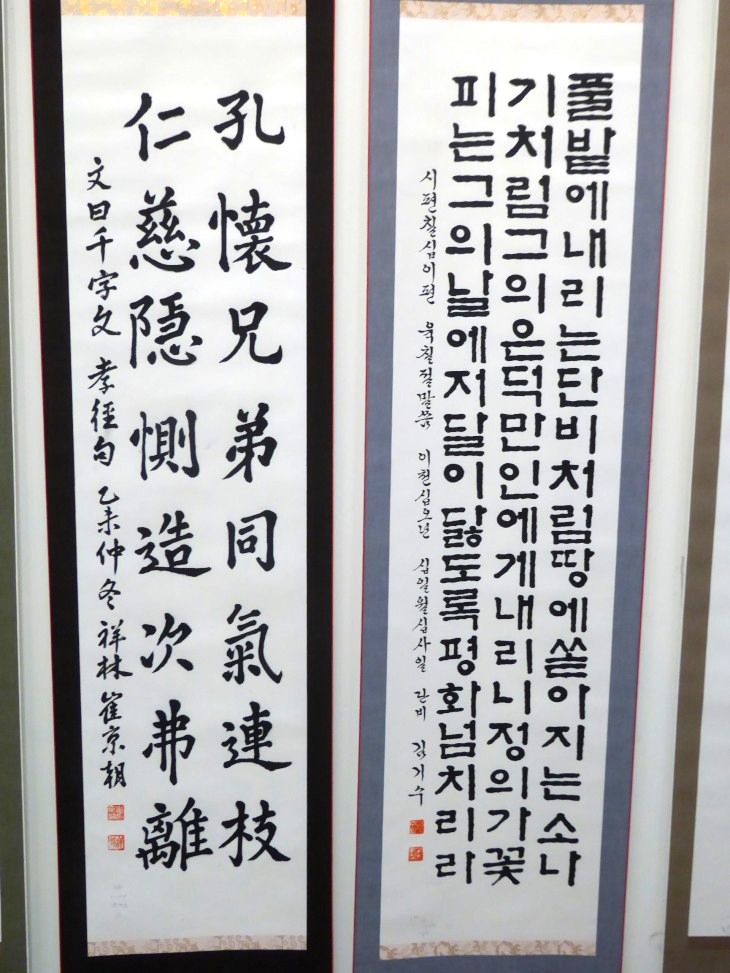 孔懷兄弟同氣連枝
仁慈隱惻造次弗離
文曰千字文 孝徑句 乙未仲冬 祥林 崔京朝
풀밭에내리는단비처럼땅에쏟아지는소나
기처럼그의은덕만인에게내리니정의가꽃
피는그의날에저달이닳도록평화넘치리라
시편칠십이편 육칠절말씀 이천십오년 십일월십사일 단비